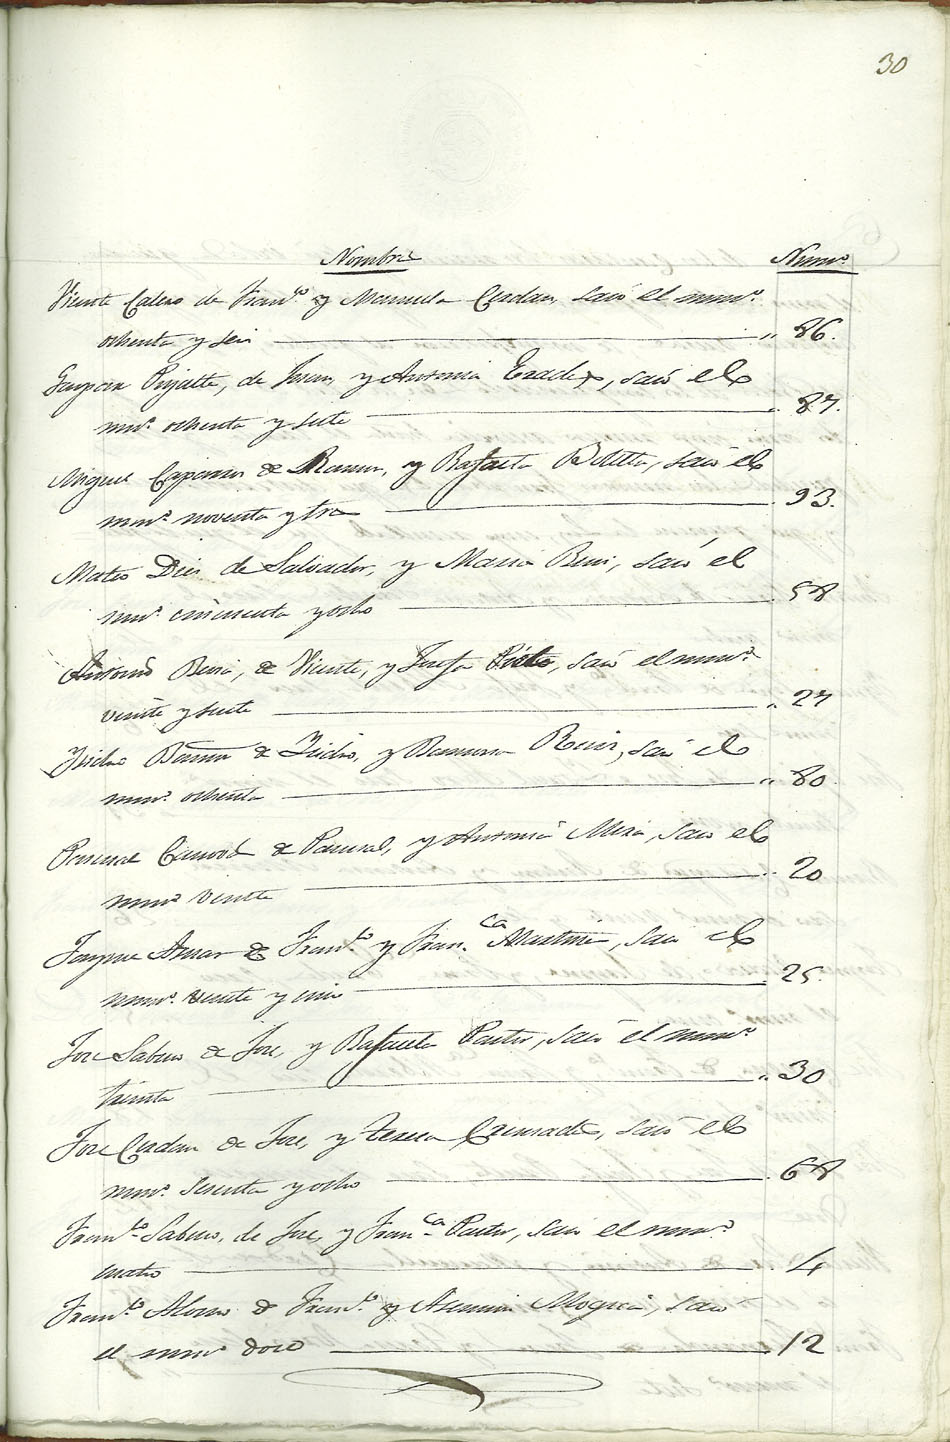 30
Nombres Numº
Vicente Calero de Franᶜᵒ y Manuela Cerdan, sacó el numº
ochenta y seis 86.
Pujalte, de Juan, y Antonia, sacó el
numº ochenta y siete 87.
Miguel de Ramon, y Rafaela Beltta, sacó el
numº noventa y tres 93.
Mateo Diez de Salvador, y Maria, sacó el
numº cincuenta y ocho 58
Antonio, de Vicente, y Josefa, sacó el numº
veinte y siete 27
Isidro de Isidro, y Ramona, sacó el
numº ochenta 80
Pascual de Pascual, y Antonia Mira, sacó el
numº veinte 20
Jayme de Franᶜᵒ y Franᶜᵃ Martinez, sacó el
numº veinte y cinco 25.
Jose Sabuco de Jose, y Rafaela Pastor, sacó el numº
treinta 30
Jose Cerdan de Jose, y Teresa, sacó el
numº sesenta y ocho 68
Franᶜᵒ Sabuco, de Jose, y Franᶜᵃ Pastor, sacó el numº
cuatro 4
Franᶜᵒ Alonso de Franᶜᵒ y, sacó
el numº doce 12